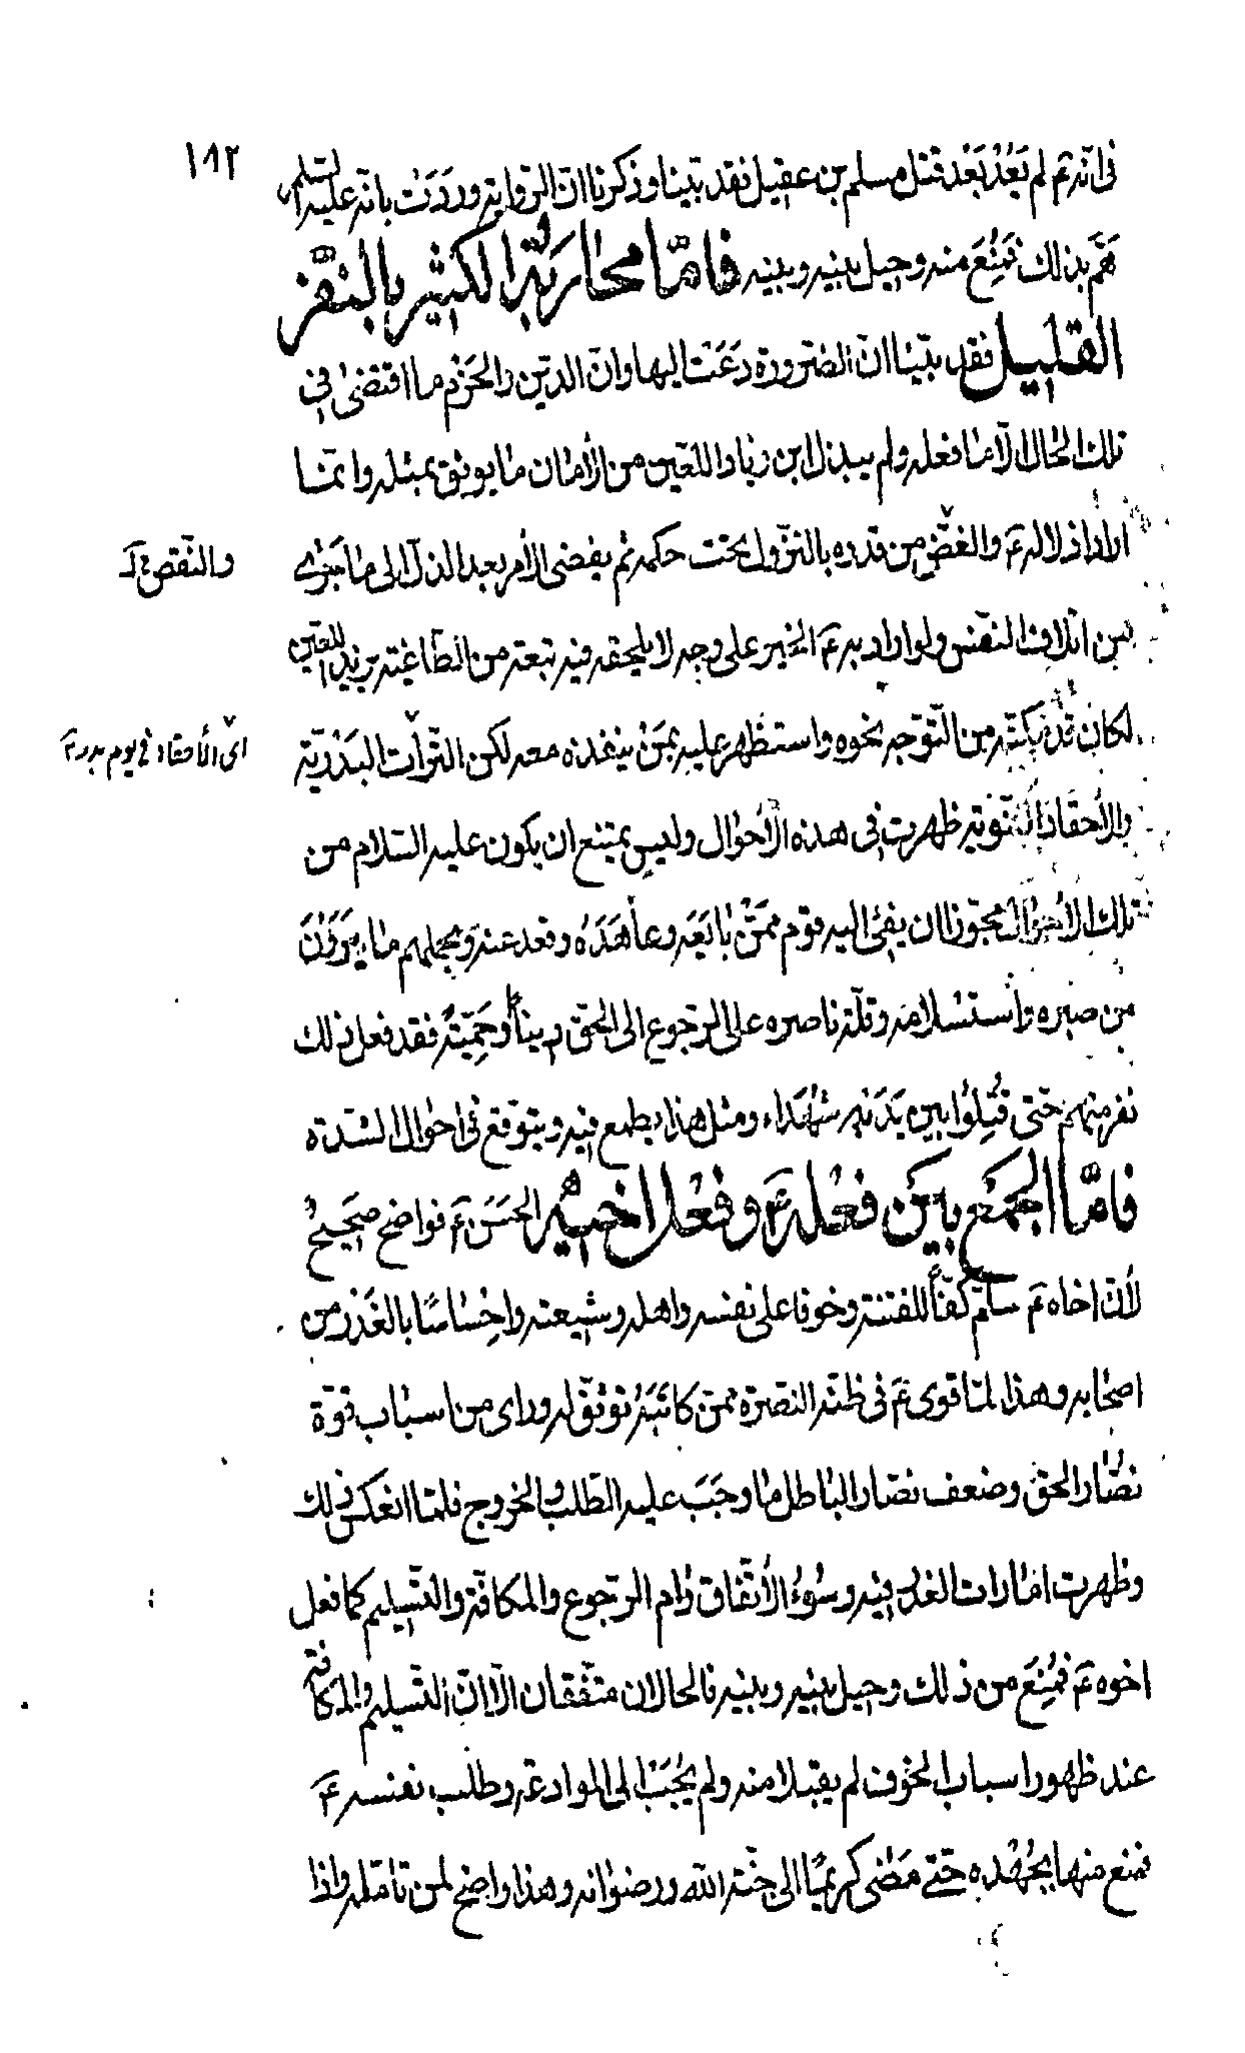 ١٨٢
فى انّه ع م لم يَعُدْ بَعْد قتل مسلم بن عقيل فقد بيّنا وذكرنا انّ الرّواية وردَت بانّه عليه السّلم
هَمَّ بذلك فمُنِعَ منه وحيل بينه وبينه فامّا محاربة الكثير بالنفر
القليل فقد بيّنا انّ الضّرورة دَعَت اليها وانّ الدّين والحَزْم ما اقتضىٰ فى
تلك الحال الّا ما فعله ولم يبذل ابن زياد اللّعين من الأمان ما يوثق بمثله وانّما
اراد اذلاله ع م والغضّ من قدره بالنّزول تحت حكمه ثم يفضى الأمر بعد الذلّ الى ما جَرٰى
والنّقص خ ل
من اتلاف النفس ولو اراد به ع م الخير على وجه لا يلحقه فيه تبعة من الطّاغية يزيد اللعين
لكان قد مكّنه من التّوجه نحوه واستظهر عليه بمَنْ ينفذه معه لكن التّرات البَدْريّة
اى الأحقاد فى يوم بدر
والأحقاد النّبويّة ظهرت فى هذه الأحوال وليس يمتنع ان يكون عليه السّلام من
تلك الأحوال مجوّزا ان يفئ اليه قوم ممّن بايَعَه وعاهَدَه وقعد عنه ويحملهم ما يرَوْنَ
من صبره واستسلامه وقلّة ناصره على الرّجوع الى الحقّ دينًا وحَمِيّةً فقد فعل ذلك
نفر منهم حتى قُتِلُوا بين يَدَيه شهداء ومثل هذا يطمع فيه ويتوقع فى احوال الشدّة
فامّا الجمع بين فعله ع م وفعل اخيه الحَسَن ع م فواضح صحيح
لأنّ اخاه ع م سلّم كفًّا للفتنة وخوفا على نفسه واهله وشيعته واحساسًا بالغَدْر من
اصحابه وهذا لمّا قوى ع م فى ظنّه النّصرة ممّن كاتَبَهُ وتوثّق له وراى من اسباب قوّة
نصّار الحقّ وضعف نصّار الباطل ما وجَبَ عليه الطّلب والخروج فلمّا انعكس ذلك
وظهرت امارات الغدر فيه وسُوءُ الأتّفاق رام الرّجوع والمكافّة والتّسليم كما فعل
اخوه ع م فمُنِعَ من ذلك وحيل بينه وبينه فالحالان متّفقان الّا انّ التّسليم والمكافة
عند ظهور اسباب الخوف لم يقبلا منه ولم يُجَبْ الى الموادعة وطلب نفسه ع م
فمنع منها بجُهْده حتّى مَضى كريمًا الى جنّة اللّه ورضوانه وهذا واضح لمن تامّله واذا